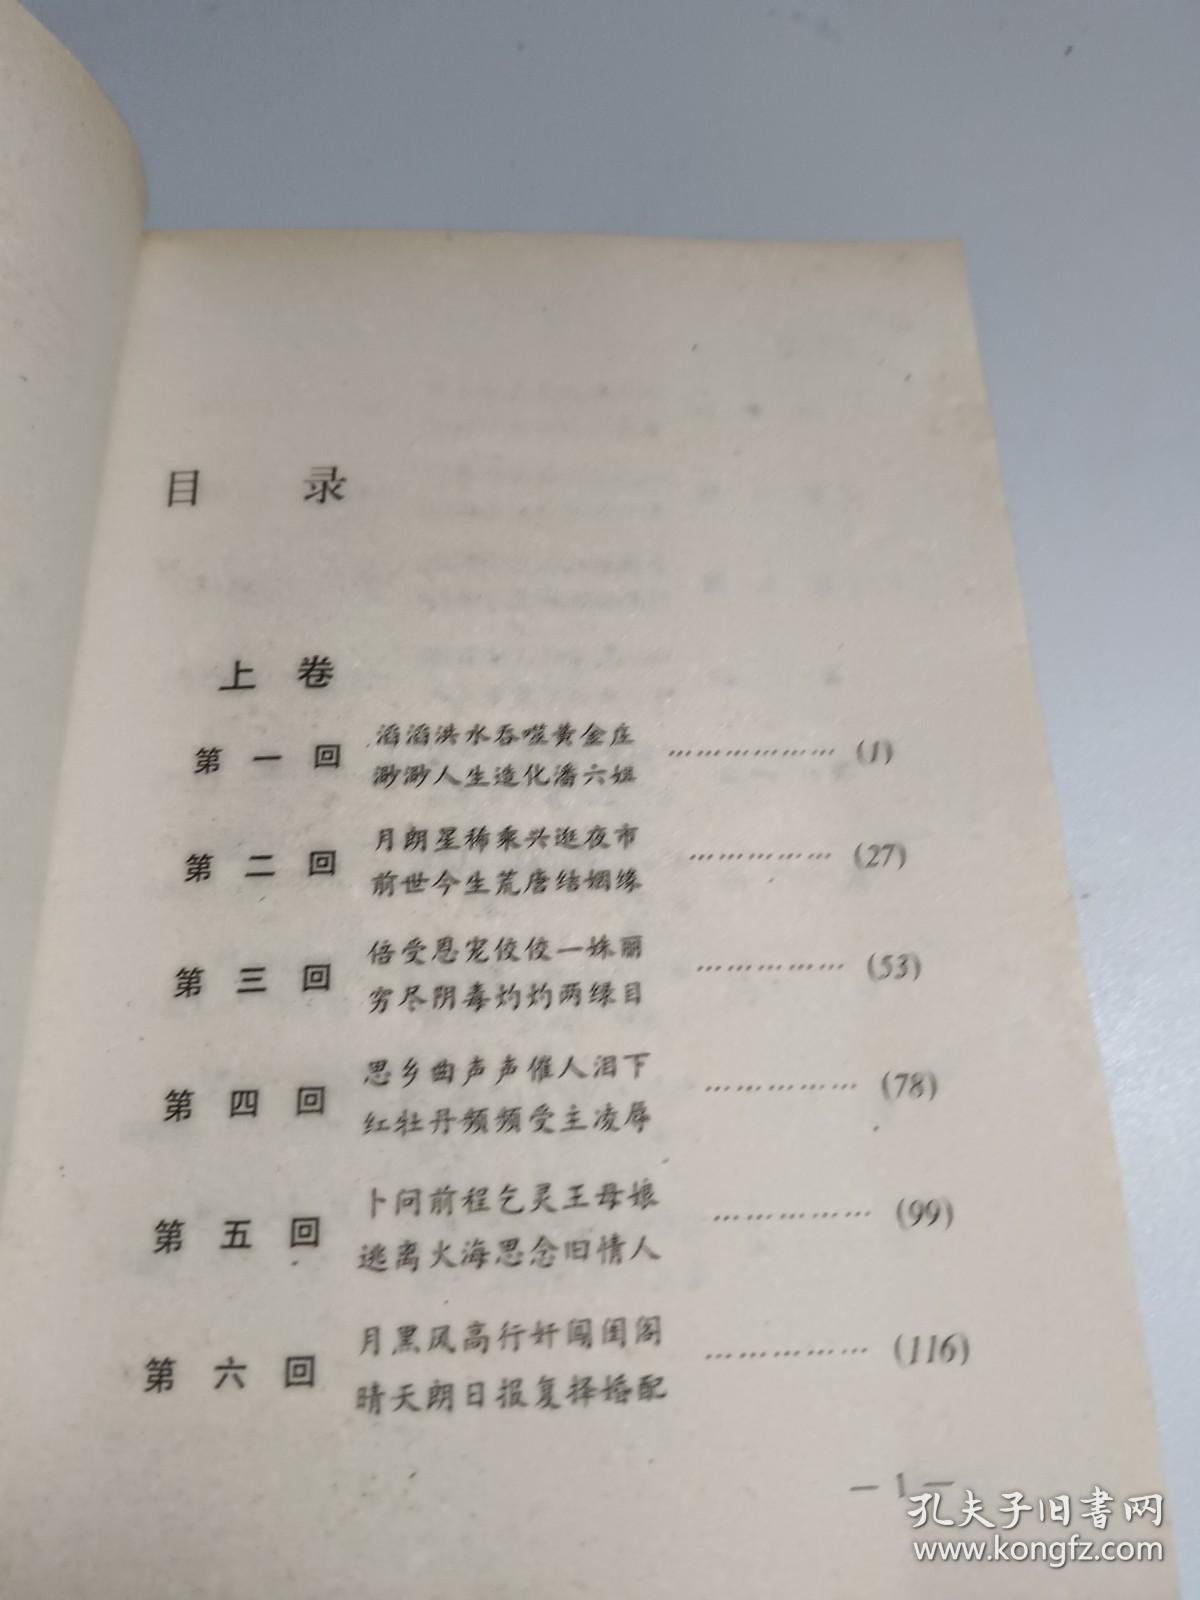 目 录
上 卷
第 一 回 滔滔洪水吞噬黄金庄 ……………… (1)
渺渺人生造化潘六姐
第 二 回 月朗星稀乘兴逛夜市 …………… (27)
前世今生荒唐结姻缘
第 三 回 倍受恩宠佼佼一姝丽 …………… (53)
穷尽阴毒灼灼两绿目
第 四 回 思乡曲声声催人泪下 …………… (78)
红牡丹频频受主凌辱
第 五 回 卜问前程乞灵王母娘 …………… (99)
逃离火海思念旧情人
第 六 回 月黑风高行奸闯闺阁 …………… (116)
晴天朗日报复择婚配
— 1 —
孔夫子旧书网
www.kongfz.com